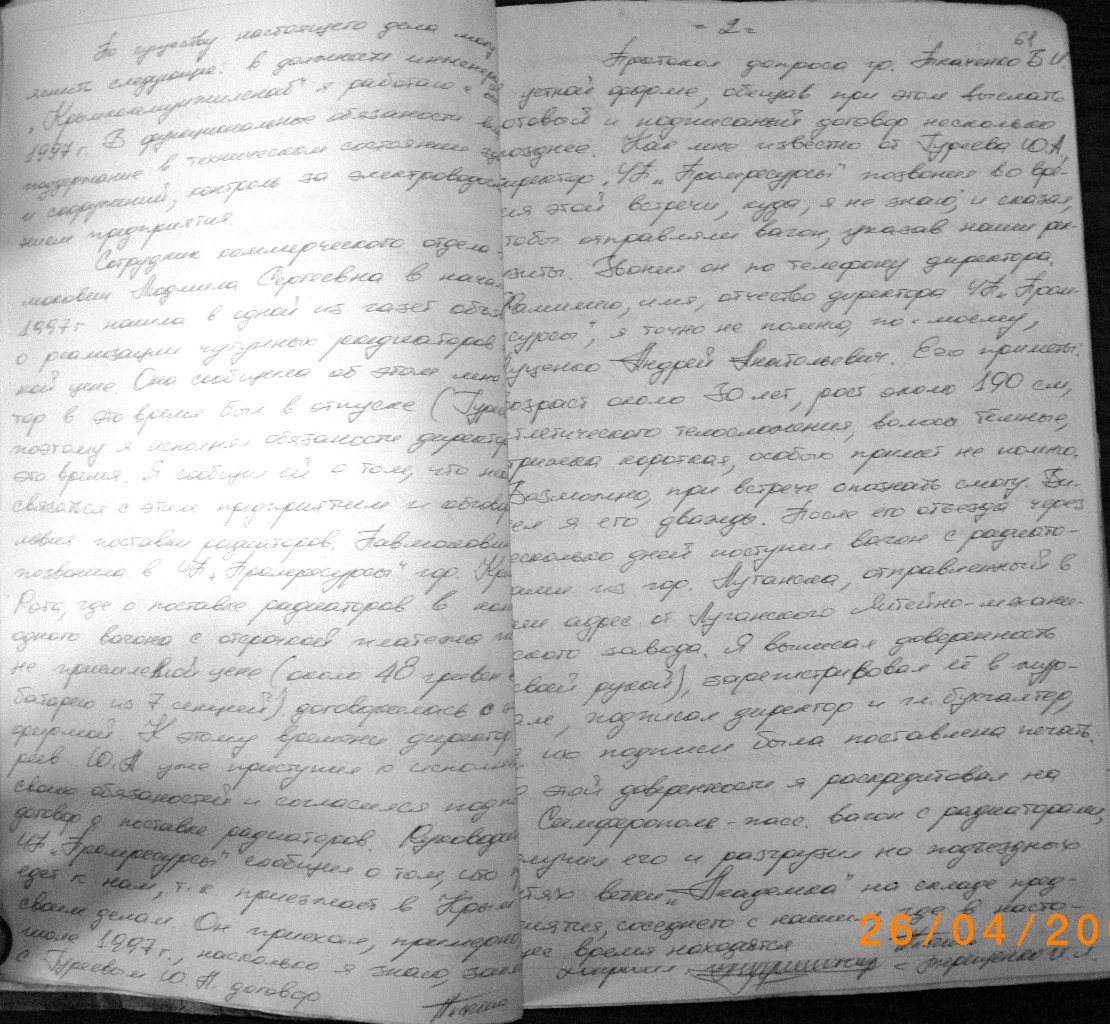 По существу настоящего дела могу
яснить следующее: в должности инженера
"Крымкоммунжилснаб" я работаю с
1997 г. В функциональные обязаности
поддержание в техническом состоянии зд
и сооружений, контроль за электроводос
нием предприятия.
Сотрудник коммерческого отдела
Людмила Сергеевна в нача
1997 г нашла в одной из газет объя
о реализации чугунных радиаторов
кой цене. Она сообщила об этом мне
тор в это время был в отпуске (Гуре
поэтому я исполнял обязаности директор
это время. Я сообщил ей о том, что на
связаться с этим предприятием и обговор
ловия поставки радиаторов.
позвонила в ЧП "Промресурсы" гор. Кр
Рога, где о поставке радиаторов в кол
одного вагона с отсрочкой платежа
не приемлемой цене (около 48 гривен
батарею из 7 секций) договорилась с
фирмой. К этому времени директор
реев Ю.А уже приступил к исполне
своих обязаностей и согласился подп
договор о поставке радиаторов. Руководи
ЧП "Промресурсы" сообщил о том, что
едет к нам, т.к приезжает в Крым
своим делам Он приехал, примерно
июле 1997 г., насколько я знаю, закл
с Гуреевым Ю.А. договор
= 2 =
61
Протокол допроса гр. Ткаченко В И
устной форме, обещав при этом выслать
отовый и подписаный договор несколько
позднее. Как мне известно от Гуреева Ю.А,
иректор "ЧП "Промресурсы" позвонил во вре-
мя этой встречи, куда, я не знаю, и сказал,
тобы отправляли вагон, указав наши рек-
изиты. Звонил он по телефону директора.
Фамилию, имя, отчество директора ЧП "Пром-
сурсы", я точно не помню, по-моему,
уценко Андрей Анатольевич. Его приметы:
возраст около 30 лет, рост около 190 см,
тлетического телосложения, волосы тёмные,
трижка короткая, особых примет не помню.
Возможно, при встрече опознать смогу. Ви-
ел я его дважды. После его отъезда через
есколько дней поступил вагон с радиато-
ами из гор. Луганска, отправленный в
аш адрес от Луганского Литейно-механи-
ского завода. Я выписал доверенность
своей рукой), зарегистрировал её в жур-
але, подписал директор и гл. бухгалтер,
их подписи была поставлена печать.
о этой доверенности я раскредитовал на
Симферополь-пасс. вагон с радиаторами,
лучил его и разгрузил на подъездных
тях ветки "Академка" на складе пред-
иятия, соседнего с нашим, где в насто-
ее время находятся
26/04/20